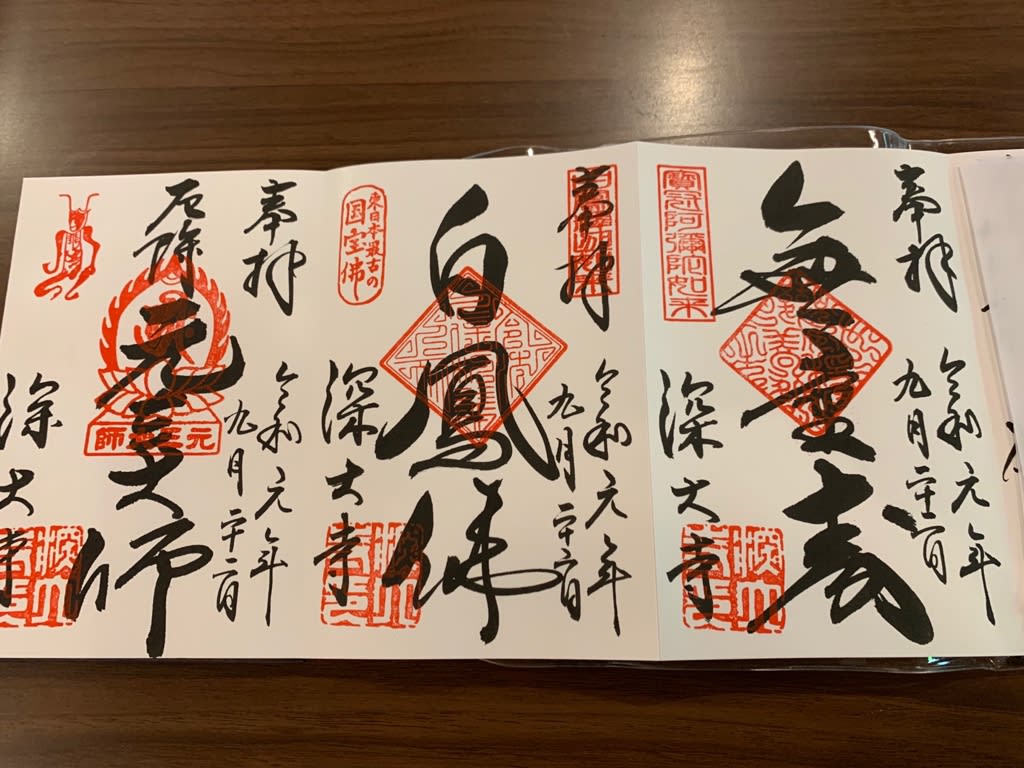 奉拝
令和元年
九月二十二日
無量寿
寶冠阿彌陀如来
深大寺
奉拝
令和元年
九月二十二日
白鳳佛
東日本最古の
国宝佛
深大寺
奉拝
令和元年
九月二十二日
厄除元三大師
元三大師
深大寺